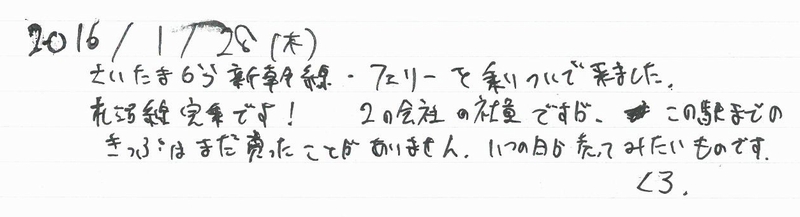 2016/1/28(木)
さいたまから新幹線・フェリーを乗りついで来ました。
札沼線完乗です! この会社の社員ですが、この駅までの
きっぷはまだ売ったことがありません。いつの日か売ってみたいものです。
く3.